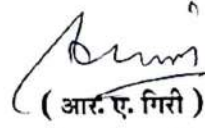 ( आर. ए. गिरी )